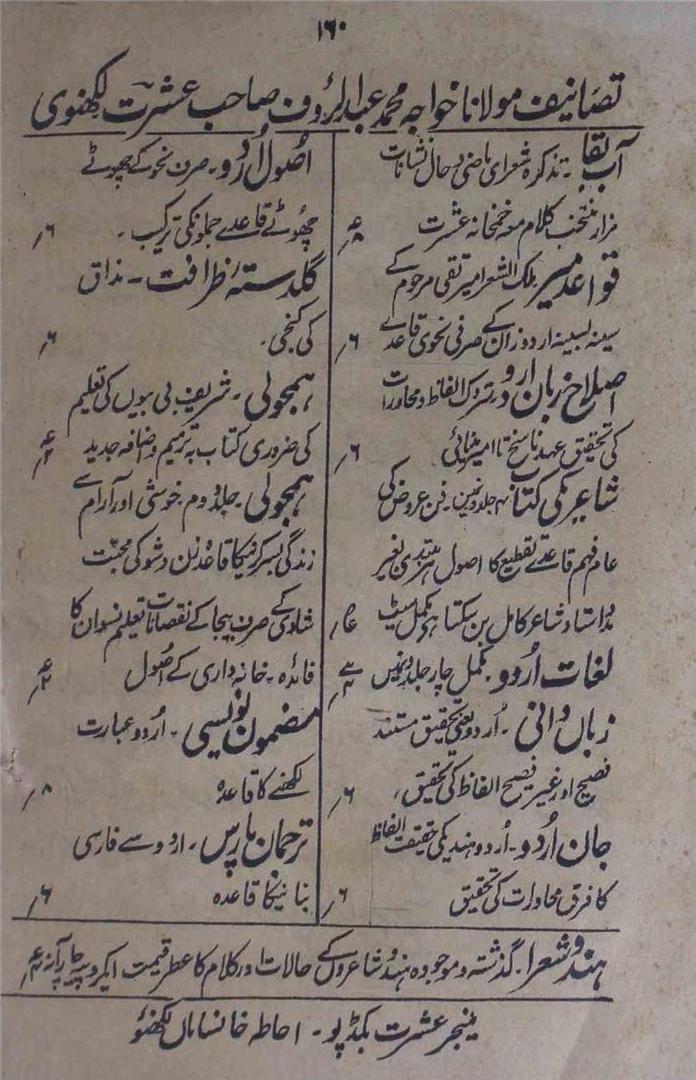 ۱۶۰
تصانیف مولانا خواجہ محمد عبدالرؤف صاحب عشرت لکھنوی
آب بقا۔ تذکرہ شعرای ماضی و حال نشانات
مزار منتخب کلام معہ خمخانہ عشرت
قواعد میر ملک الشعرا میر تقی مرحوم کے
سینہ بسینہ اردو زبان کے صرفی نحوی قاعدے ۶؍
اصلاح زبان اردو متروک الفاظ و محاورات
کی تحقیق عہد ناسخ تا امیر مینائی ۶؍
شاعری کی کتاب ۔ جلدونمیں۔ فن عروض کی
عام فہم قاعدے تقطیع کا اصول ہر مبتدی بغیر
مدد استاد شاعر کامل بن سکتا ہی مکمل سیٹ
لغات اردو۔ مکمل چار جلدونمیں
زباں دانی۔ اردو کی تحقیق مستند
فصیح اور غیر فصیح الفاظ کی تحقیق، ۶؍
جان اردو۔ اردو ہندیکی حقیقت الفاظ
کا فرق محاورات کی تحقیق ۶؍
اصول اردو۔ صرف نحو کے چھوٹے
چھوٹے قاعدے جملونکی ترکیب۔ ۶؍
گلدستہ ظرافت۔ مذاق
کی کنجی۔ ۶؍
ہمجولی۔ شریف بی بیوں کی تعلیم
کی ضروری کتاب بہ ترمیم و اضافہ جدید
ہمجولی۔ جلد دوم۔ خوشی اور آرام سے
زندگی بسر کرنیکا قاعدہ زن و شو کی محبت
شادی کے صرف بیجا کے نقصانات تعلیم نسوان کا
فائدہ۔ خانہ داری کے اصول
مضمون نویسی۔ اردو عبارت
لکھنے کا قاعدہ ۸؍
ترجمان پارس۔ اردو سے فارسی
بنانیکا قاعدہ ۶؍
ہندو شعرا۔ گذشتہ و موجودہ ہندو شاعروں کے حالات اور کلام کا عطر قیمت ایکروپیہ چار آنہ
منیجر عشرت بکڈپو۔ احاطہ خانساماں لکھنؤ